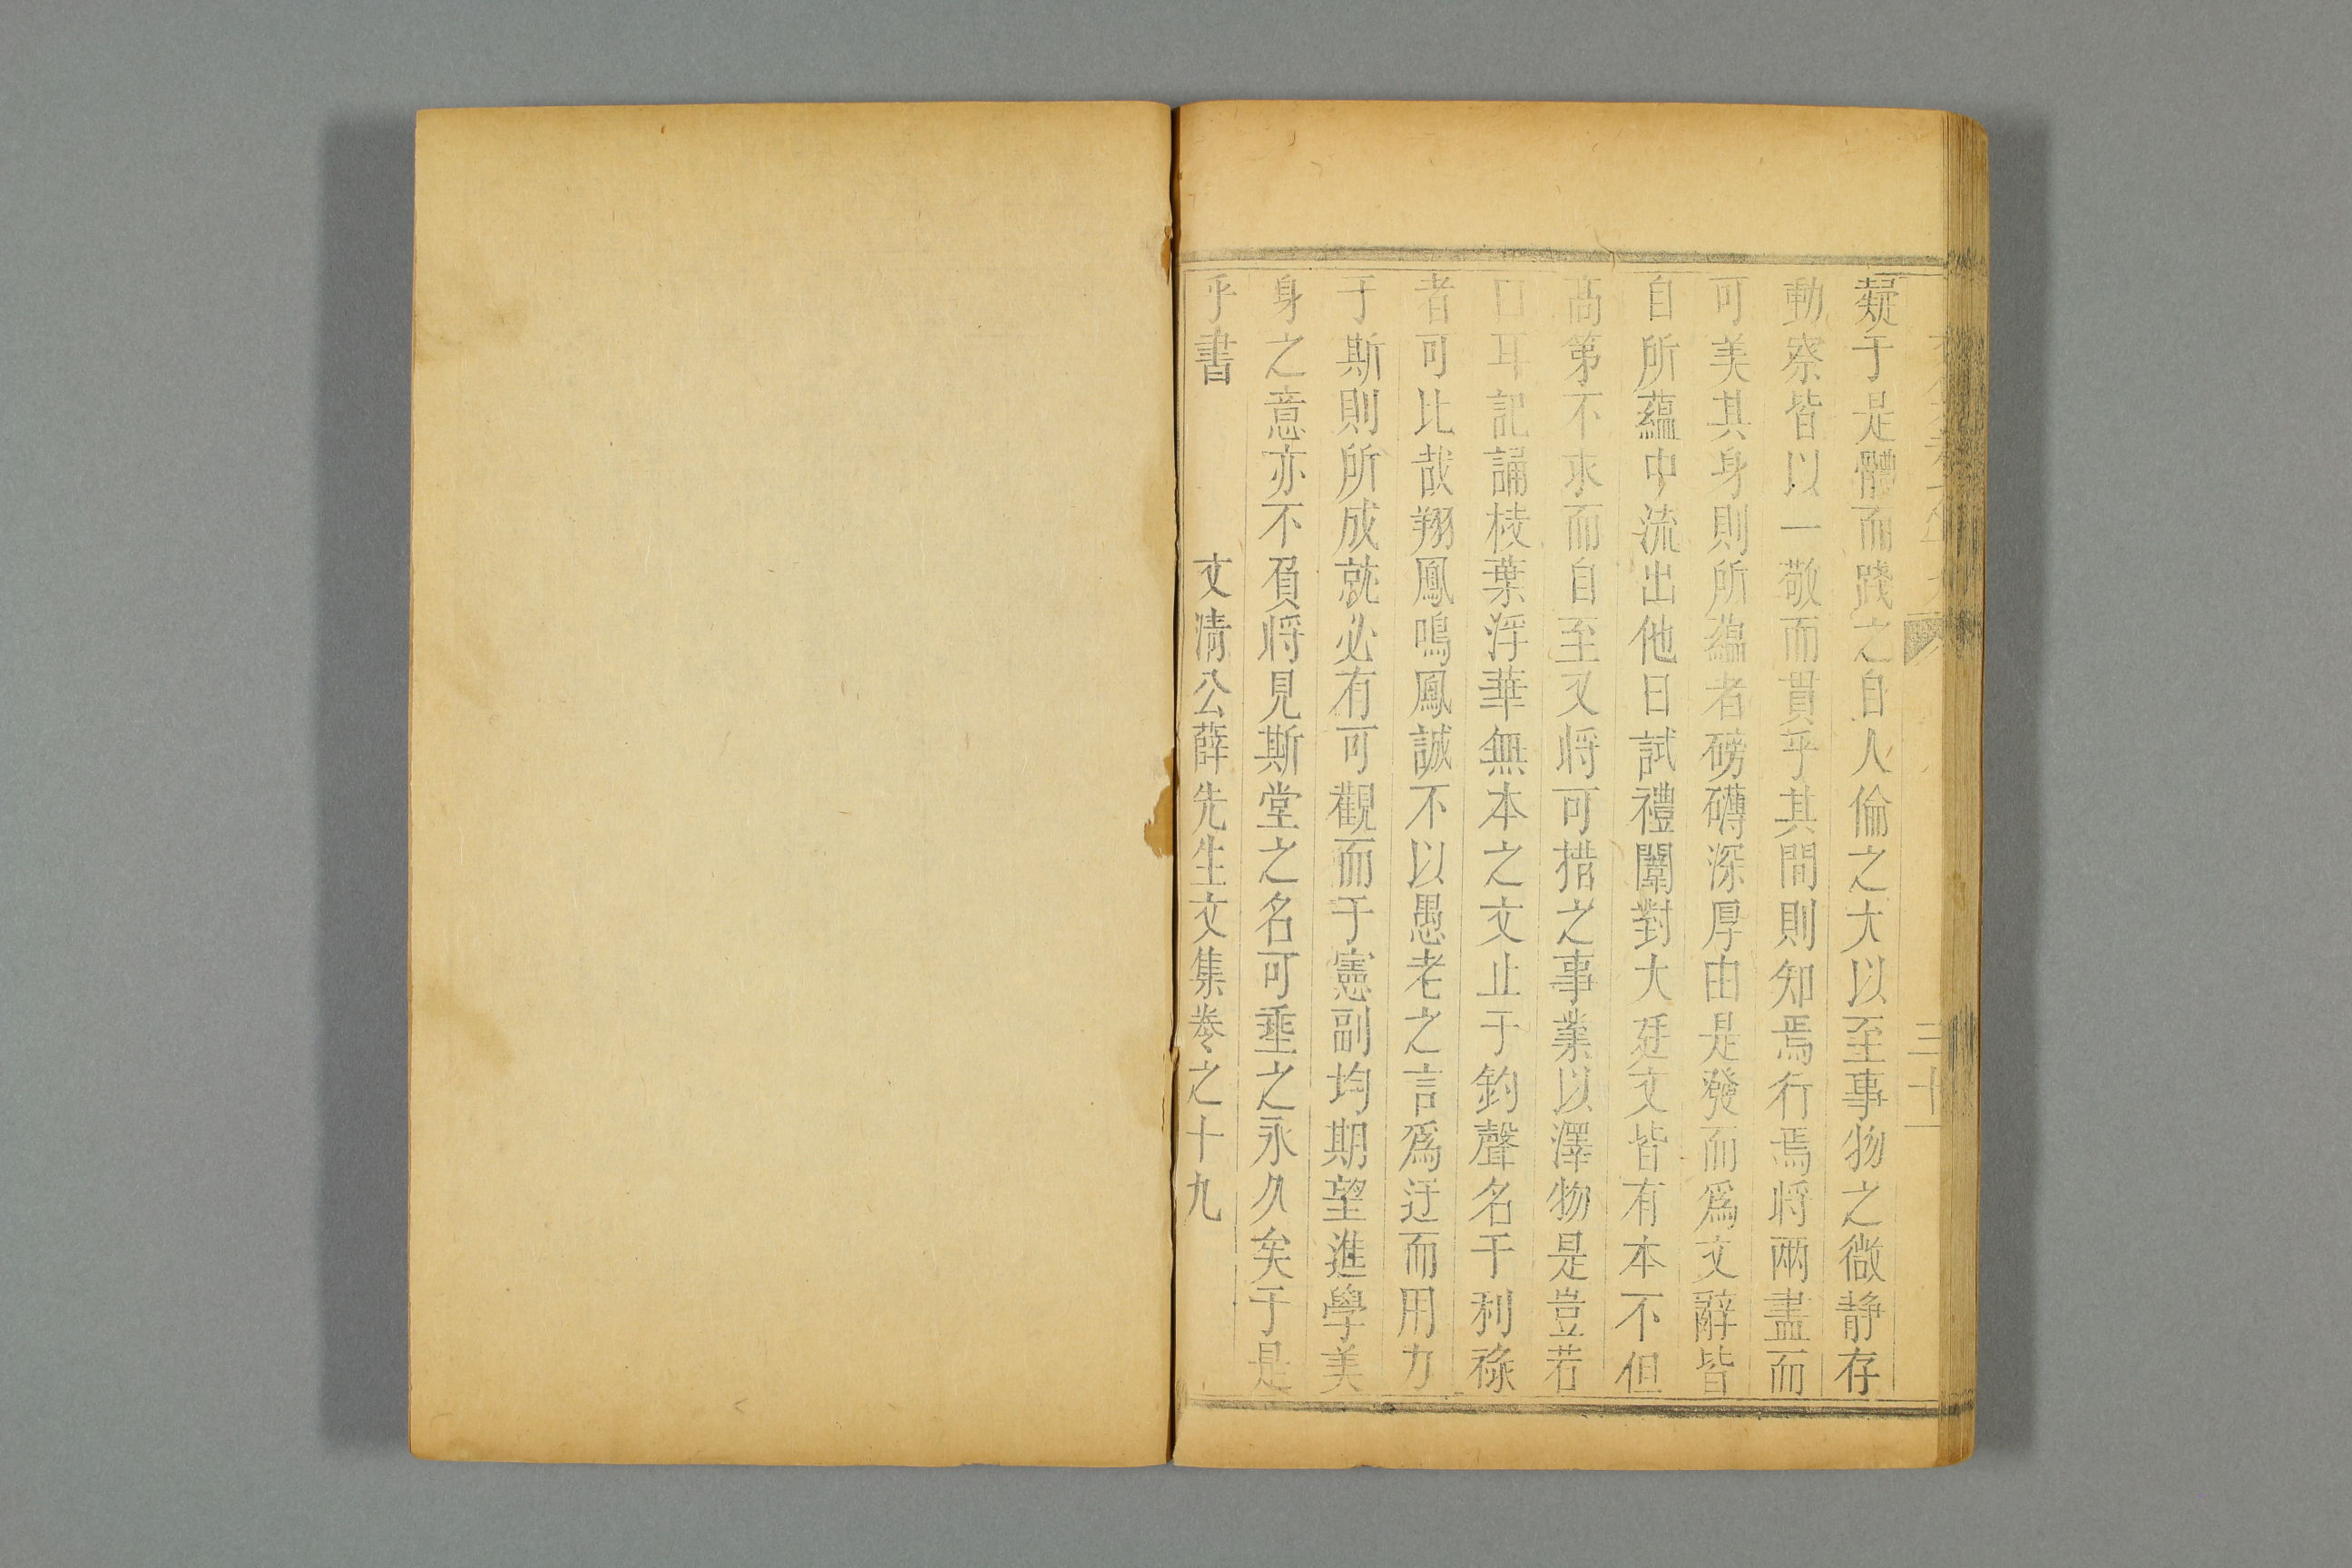 三十一
疑于是體而踐之自人倫之大以至事物之微静存
動察皆以一敬而貫乎其間則知焉行焉將兩盡而
可美其身則所蘊者磅礴深厚由是發而爲文辭皆
自所蘊中流出他日試禮闈對大廷文皆有本不但
高第不求而自至又將可措之事業以澤物是豈若
口耳記誦枝葉浮華無本之文止于釣聲名干利祿
者可比哉翔鳳鳴鳳誠不以愚老之言爲迂而用力
于斯則所成就必有可觀而于憲副均期望進學美
身之意亦不負將見斯堂之名可埀之永久矣于是
乎書
文清公薛先生文集卷之十九